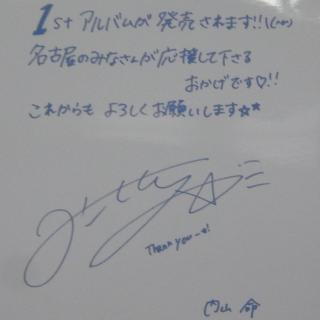 1st アルバムが発売されます!!\(^o^)
名古屋のみなさんが応援して下さる
おかげです♡!!
これからも よろしくお願いします☆★
Thank you~!
内山 命